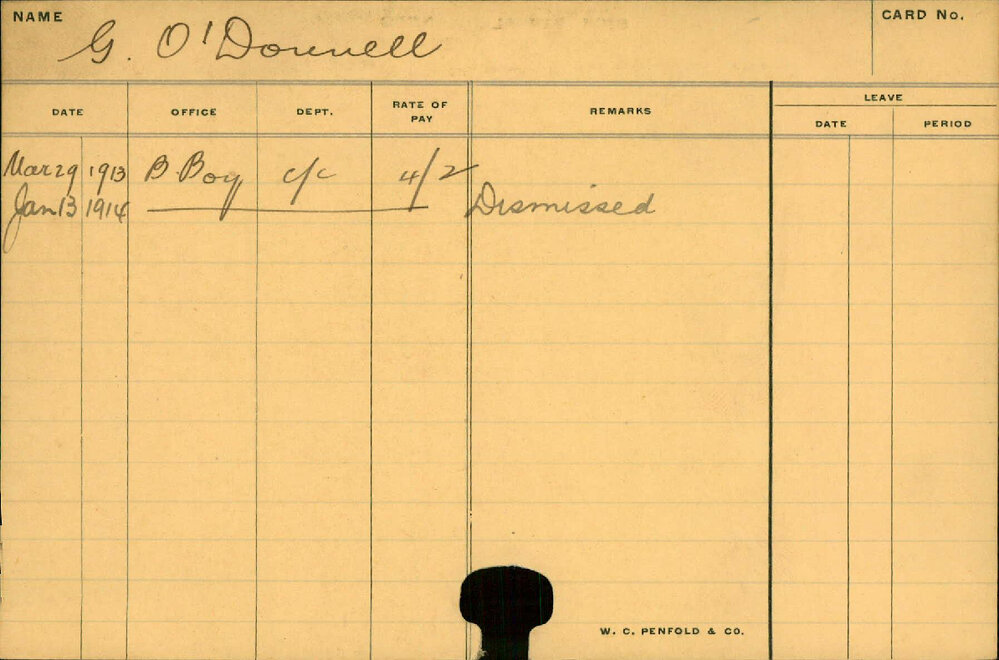 NAME G. O'Donnell CARD No.
DATE OFFICE DEPT. RATE OF PAY REMARKS LEAVE
DATE PERIOD
Mar 29 1913 B. Boy c/c 4/2
Jan 13 1914 Dismissed
W. C. PENFOLD & CO.